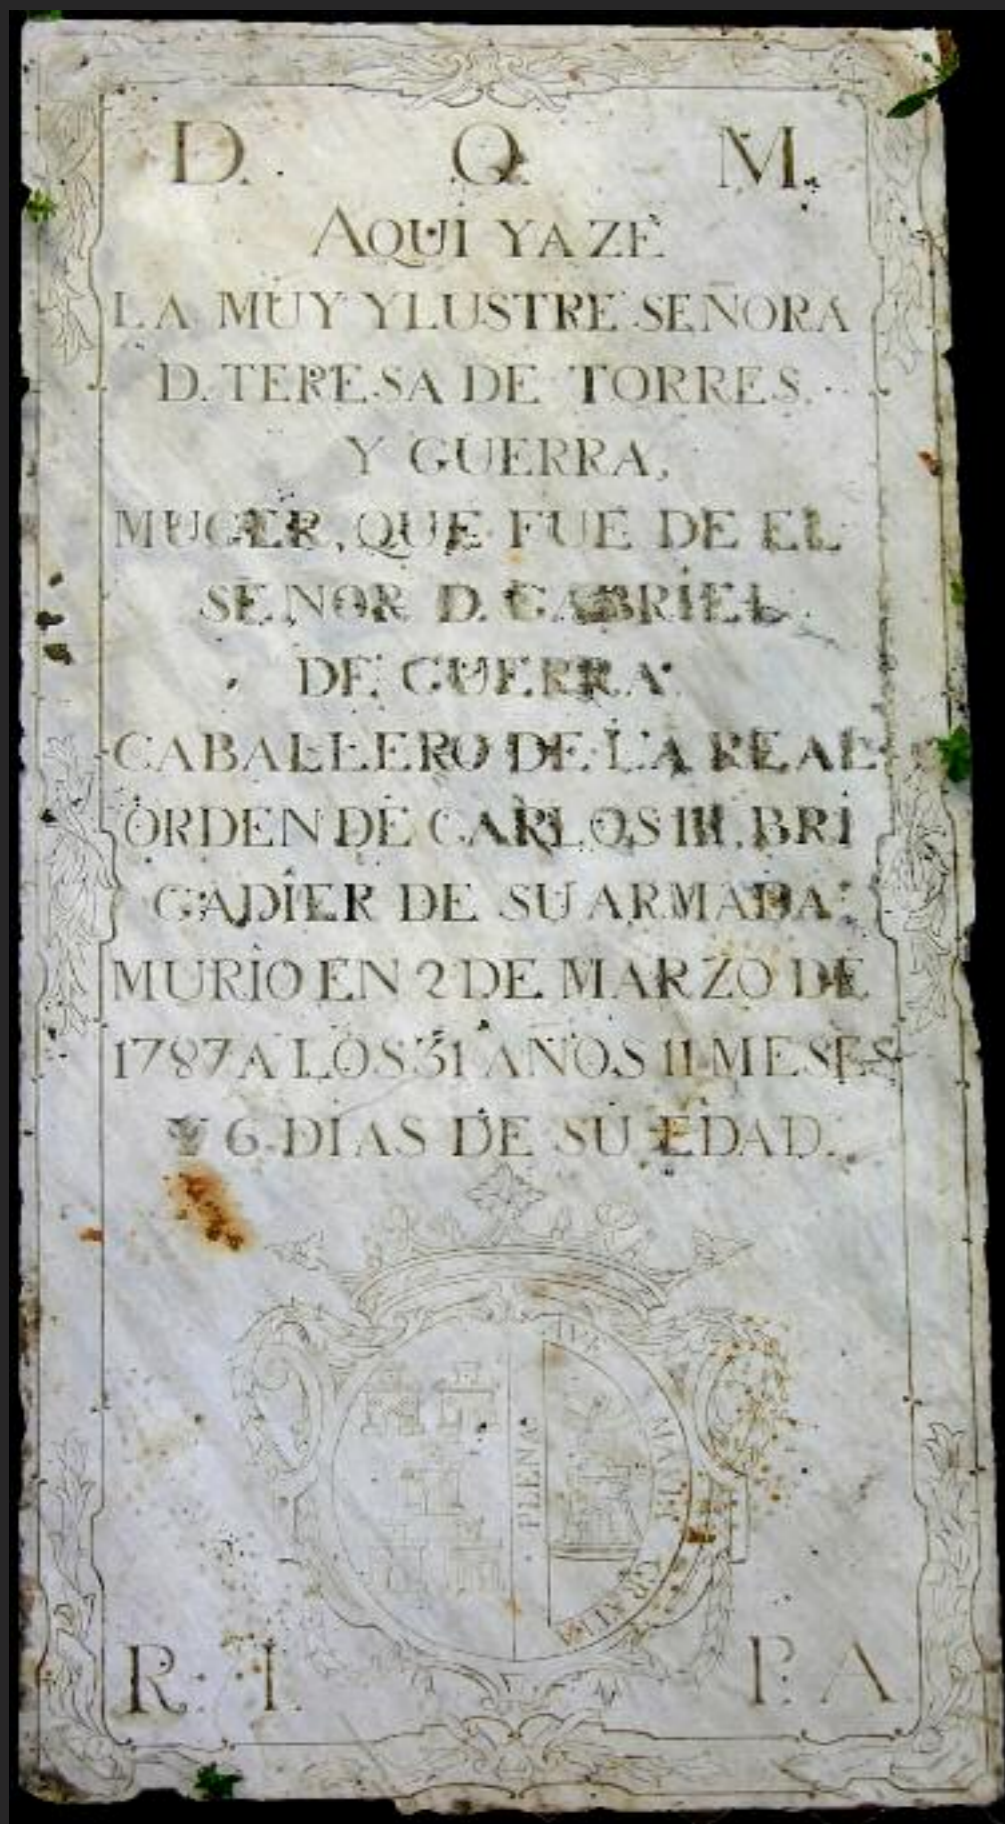 D. O. M.
AQUI YAZE
LA MUY YLUSTRE SEÑORA
D. TERESA DE TORRES
Y GUERRA,
MUGER, QUE FUE DE EL
SEÑOR D. GABRIEL
DE GUERRA
CABALLERO DE LA REAL
ORDEN DE CARLOS III. BRI
GADIER DE SU ARMADA
MURIO EN 2 DE MARZO DE
1787 A LOS 31 AÑOS 11 MESES
Y 6 DIAS DE SU EDAD.
AVE MARIA GRATIA
PLENA
R. I. P. A.